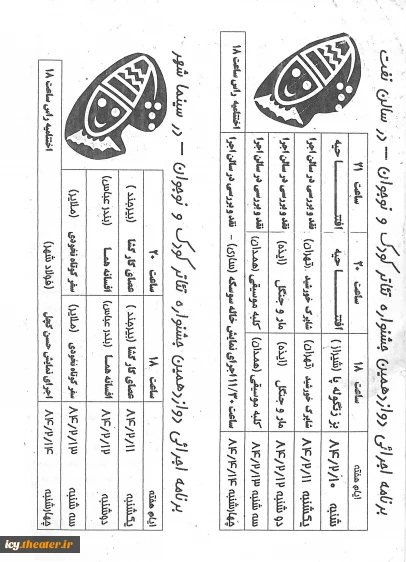 برنامه اجرائی دوازدهمین جشنواره تئاتر کودک و نوجوان – در سالن نفت
ایام هفته ساعت ۱۸ ساعت ۲۰ ساعت ۲۱
شنبه ۸۴/۲/۱۰ بز زنگوله پا (شیراز) افتتاحیه افتتاحیه
یکشنبه ۸۴/۲/۱۱ شاپرک خورشید (تهران) شاپرک خورشید (تهران) نقد و بررسی در سالن اجرا
دوشنبه ۸۴/۲/۱۲ مار و جنگل (ایذه) مار و جنگل (ایذه) نقد و بررسی در سالن اجرا
سه شنبه ۸۴/۲/۱۳ کلبه موسیقی (همدان) کلبه موسیقی (همدان) نقد و بررسی در سالن اجرا
چهارشنبه ۸۴/۲/۱۴ ساعت ۱۱/۳۰ اجرای نمایش خاله سوسکه (ساری) – اختتامیه راس ساعت ۱۸
برنامه اجرائی دوازدهمین جشنواره تئاتر کودک و نوجوان – در سینما شهر
ایام هفته ساعت ۱۸ ساعت ۲۰
یکشنبه ۸۴/۲/۱۱ عصای کار گشا (بیرجند) عصای کار گشا (بیرجند)
دوشنبه ۸۴/۲/۱۲ افسانه همسا (بندر عباس) افسانه همسا (بندر عباس)
سه شنبه ۸۴/۲/۱۳ سفر کوتاه نخودی (ملایر) سفر کوتاه نخودی (ملایر)
چهارشنبه ۸۴/۲/۱۴ اجرای نمایش حسن کچل (فولاد شهر) اختتامیه راس ساعت ۱۸
icy.theater.ir